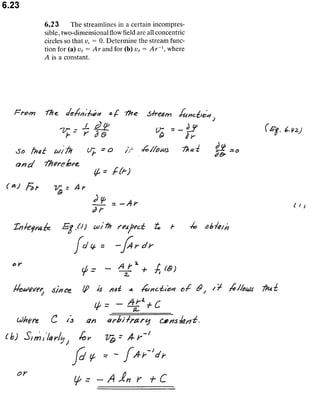 6.23
6.23 The streamlines in a certain incompres-
sible, two-dimensional flow field are all concentric
circles so that vr = 0. Determine the stream func-
tion for (a) vθ = Ar and for (b) vθ = Ar⁻¹, where
A is a constant.
From the definition of the stream function,
vr = 1/r ∂ψ/∂θ vθ = - ∂ψ/∂r (Eq. 6.42)
so that with vr = 0 it follows that ∂ψ/∂θ = 0
and therefore
ψ = f(r)
(a) For vθ = Ar
∂ψ/∂r = - Ar (1)
Integrate Eq.(1) with respect to r to obtain
∫dψ = -∫Ar dr
or ψ = - Ar²/2 + f₁(θ)
However, since ψ is not a function of θ, it follows that
ψ = - Ar²/2 + C
where C is an arbitrary constant.
(b) Similarly, for vθ = Ar⁻¹
∫dψ = -∫Ar⁻¹dr
or ψ = - A ln r + C